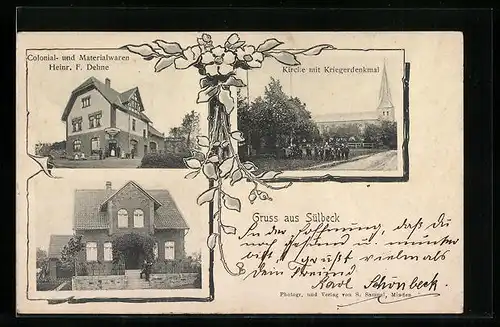 Colonial- und Materialwaren
Heinr. F. Dehne
Kirche mit Kriegerdenkmal
Gruss aus Sülbeck
In der Hoffnung, daß du
noch gesund u. munter
bist, grüßt vielmals
dein Freund
Karl Schönbeck.
Photogr. und Verlag von S. Samuel, Minden